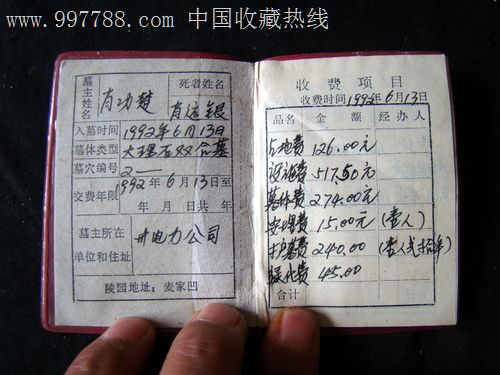 www.997788.com 中国收藏热线
墓主姓名 肖功楚 死者姓名 肖远银
入墓时间 1992年6月13日
墓体类型 大理石双合墓
墓穴编号 2—
交费年限 1992年6月13日至
年 月 日共 年
墓主所在单位和住址 电力公司
陵园地址:麦家凹
收费项目
收费时间1992年6月13日
品名 金额 经办人
占地费 126.00元
设施费 517.50元
墓体费 274.00元
安埋费 15.00元(壹人)
护墓费 240.00(壹人贰拾年)
绿化费 45.00
合计